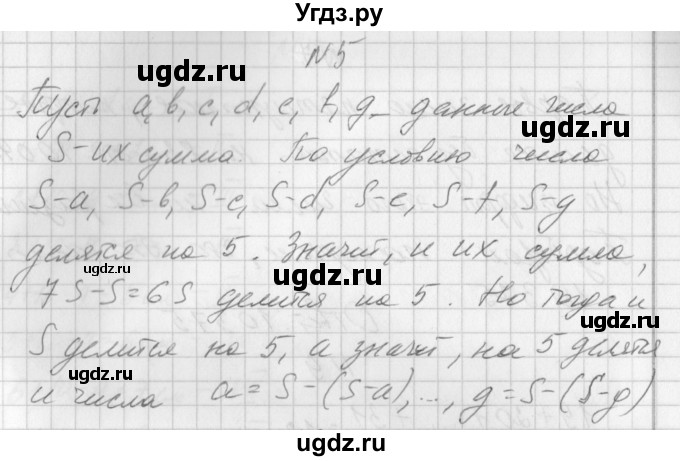 Угдз.ру
N5
ugdz.ru
Пусть a, b, c, d, c, f, g - данные числа
ugdz.ru
S - их сумма. По условию числа
S-a, S-b, S-c, S-d, S-c, S-f, S-g
ugdz.ru
делятся на 5. Значит, и их сумма,
ugdz.ru
7S-S=6S делится на 5. Но тогда и
ugdz.ru
S делится на 5, а значит, на 5 делятся
ugdz.ru
и числа a=S-(S-a),..., g=S-(S-g)
ugdz.ru